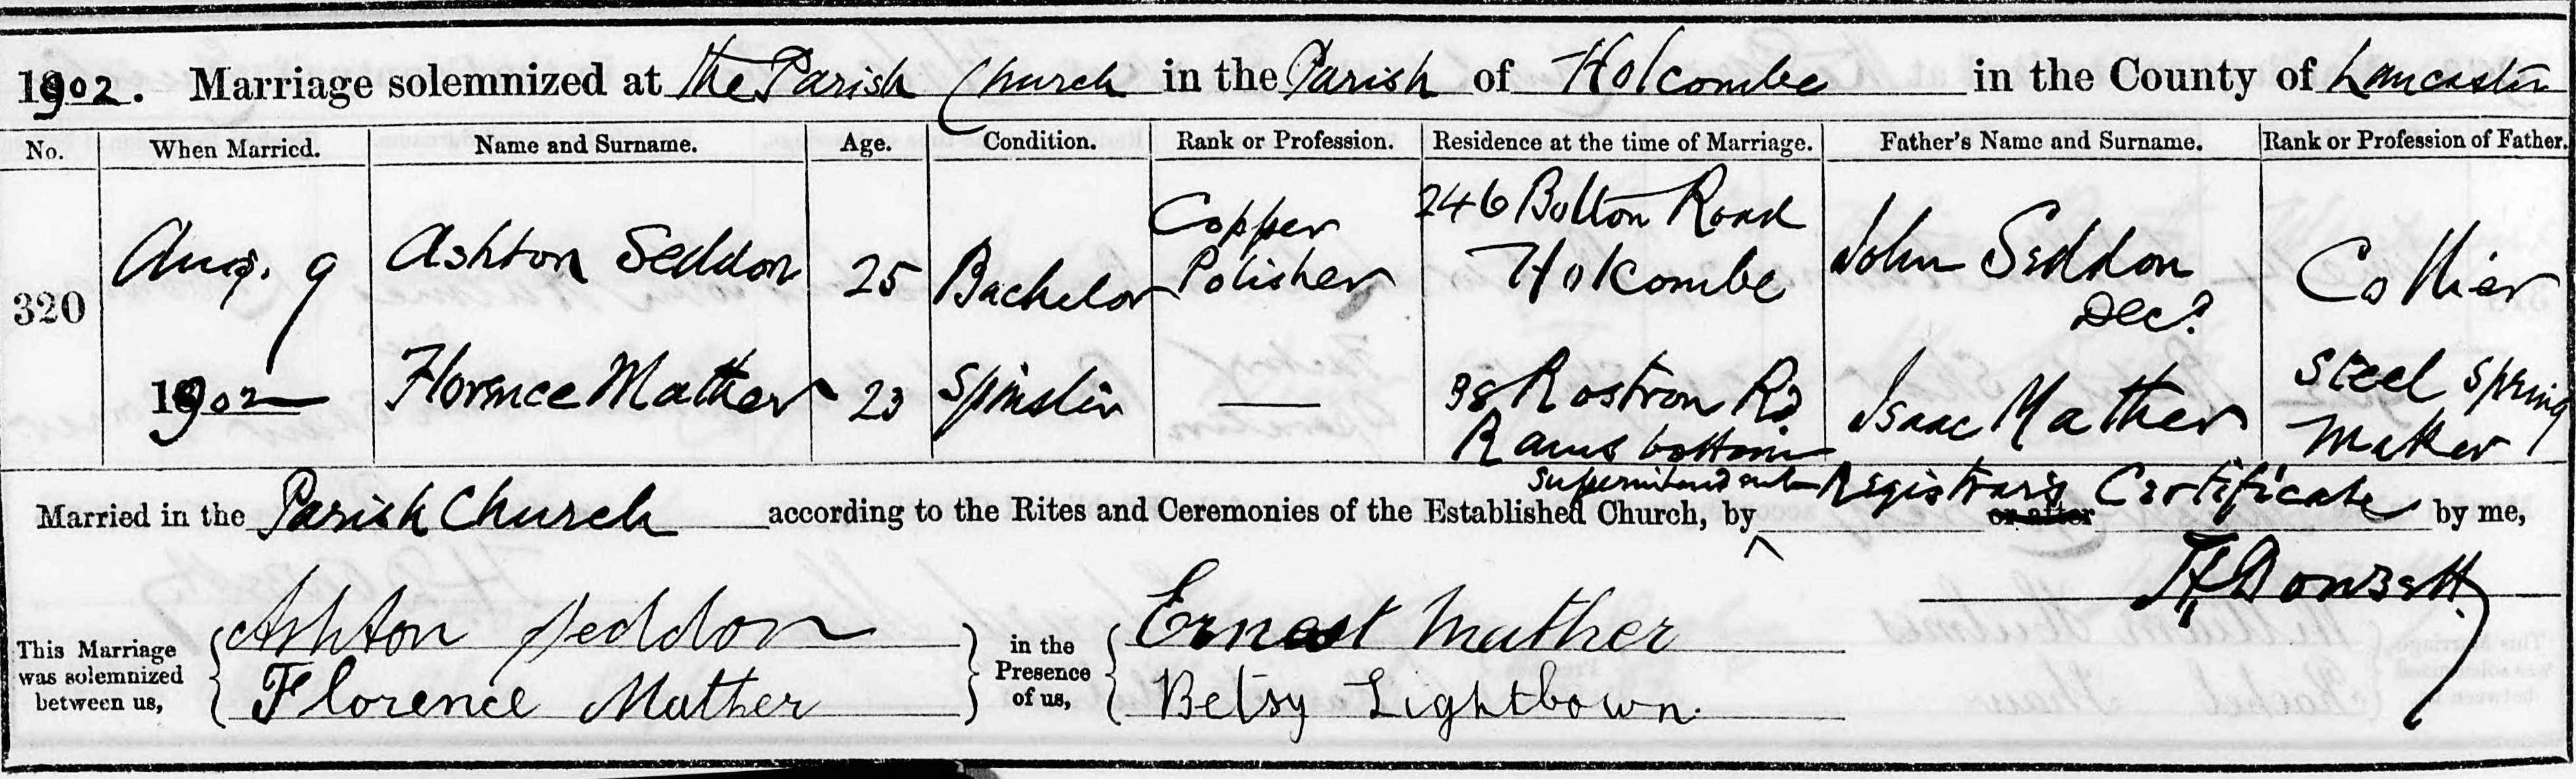 1902. Marriage solemnized at the Parish Church in the Parish of Holcombe in the County of Lancaster
No. When Married. Name and Surname. Age. Condition. Rank or Profession. Residence at the time of Marriage. Father's Name and Surname. Rank or Profession of Father.
320 Aug. 9 Ashton Seddon 25 Bachelor Copper Polisher 246 Bolton Road Holcombe John Seddon Decd. Collier
1902 Florence Mather 23 Spinster — 38 Rostron Rd Ramsbottom Isaac Mather Steel Spring Maker
Married in the Parish Church according to the Rites and Ceremonies of the Established Church, by Superintendent Registrar's Certificate or after by me,
H. Dowsett.
This Marriage was solemnized between us, Ashton Seddon in the Presence of us, Ernest Mather
Florence Mather Betsy Lightbown.